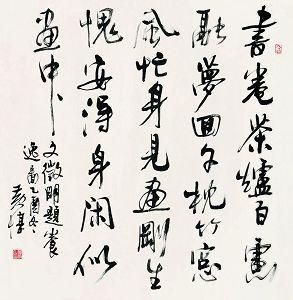 書卷茶爐百慮
融夢回午枕竹窓
風忙身見畫剛生
愧安得身閑似
畫中
文徵明題養
逸圖乙酉冬